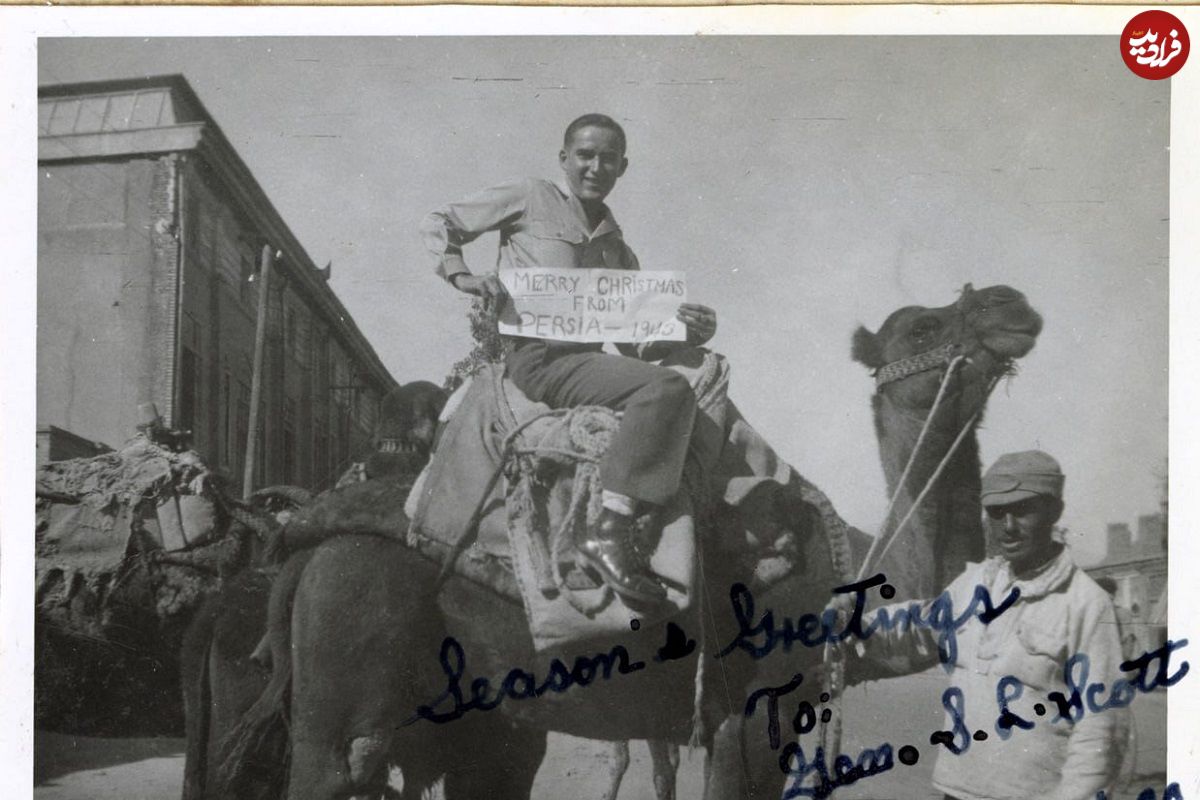 فرادید
MERRY CHRISTMAS
FROM
PERSIA — 1943
Season's Greetings
To:
Gen. S. L. Scott